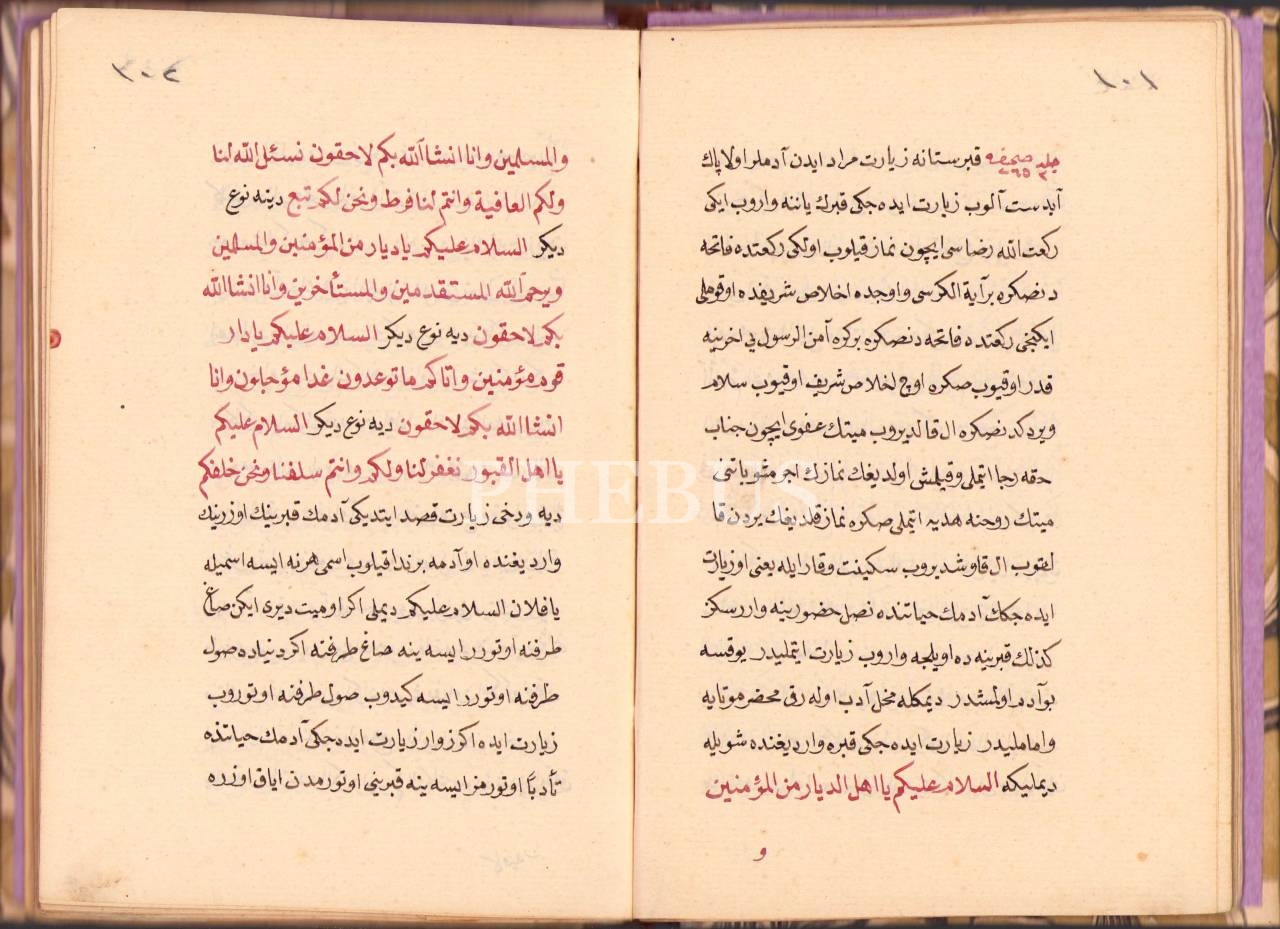 ١٠١
جلد ٣ صحيفه ٢٦٥ قبرستانه زيارت مراد ايدن آدملر اولا پاك
آبدست آلوب زيارت ايده جكى قبرك ياننه واروب ايكى
ركعت الله رضاسى ايچون نماز قيلوب اولكى ركعتده فاتحه
دنصكره بر آية الكرسى و اوجده اخلاص شريفده اوقوملى
ايكنجى ركعتده فاتحه دنصكره بركره آمن الرسول يى اخرينه
قدر اوقيوب صكره اوچ اخلاص شريف اوقيوب سلام
ويردكدنصكره ال قالديروب ميتك عفوى ايچون جناب
حقه رجا ايتملى وقيلمش اولديغك نمازك اجر مثوباتنى
ميتك روحنه هديه ايتملى صكره نماز قلديغك يردن قا
لقوب ال قاوشديروب سكينت وقار ايله يعنى او زيارت
ايده جكك آدمك حياتنده نصل حضورينه وارر سكز
كذلك قبرينه ده اويلجه واروب زيارت ايتمليدر يوقسه
بو آدم اولمشدر ديمكله مخل آدب اوله رق محضر موتايه
وامامليدر زيارت ايده جكى قبره وارديغنده شويله
ديمليكه السلام عليكم يا اهل الديار من المؤمنين
و
٣٠٢
والمسلمين وانا انشاالله بكم لاحقون نسئل الله لنا
ولكم العافية وانتم لنا فرط ونحن لكم تبع دينه نوع
ديكر السلام عليكم يا ديار من المؤمنين والمسلمين
ويرحم الله المستقدمين والمستأخرين وانا انشاالله
بكم لاحقون ديه نوع ديكر السلام عليكم يا دار
قوم مؤمنين واتاكم ما توعدون غدا مؤجلون وانا
انشاالله بكم لاحقون ديه نوع ديكر السلام عليكم
يا اهل القبور نغفر لنا ولكم وانتم سلفنا ونحن خلفكم
ديه ودخى زيارت قصد ايتديكى آدمك قبرينك اوزرينك
وارديغنده او آدمه برندا قيلوب اسمى هرنه ايسه اسميله
يا فلان السلام عليكم ديملى اكر اوميت ديرى ايكن صاغ
طرفنه اوتورر ايسه ينه صاغ طرفنه اكر دنياده صول
طرفنه اوتورر ايسه كيدوب صول طرفنه اوتوروب
زيارت ايده اكر زوار زيارت ايده جكى آدمك حياتنده
تأدباً اوتورمز ايسه ينه قبرينى اوتورمدن اياق اوزره
PHEBUS